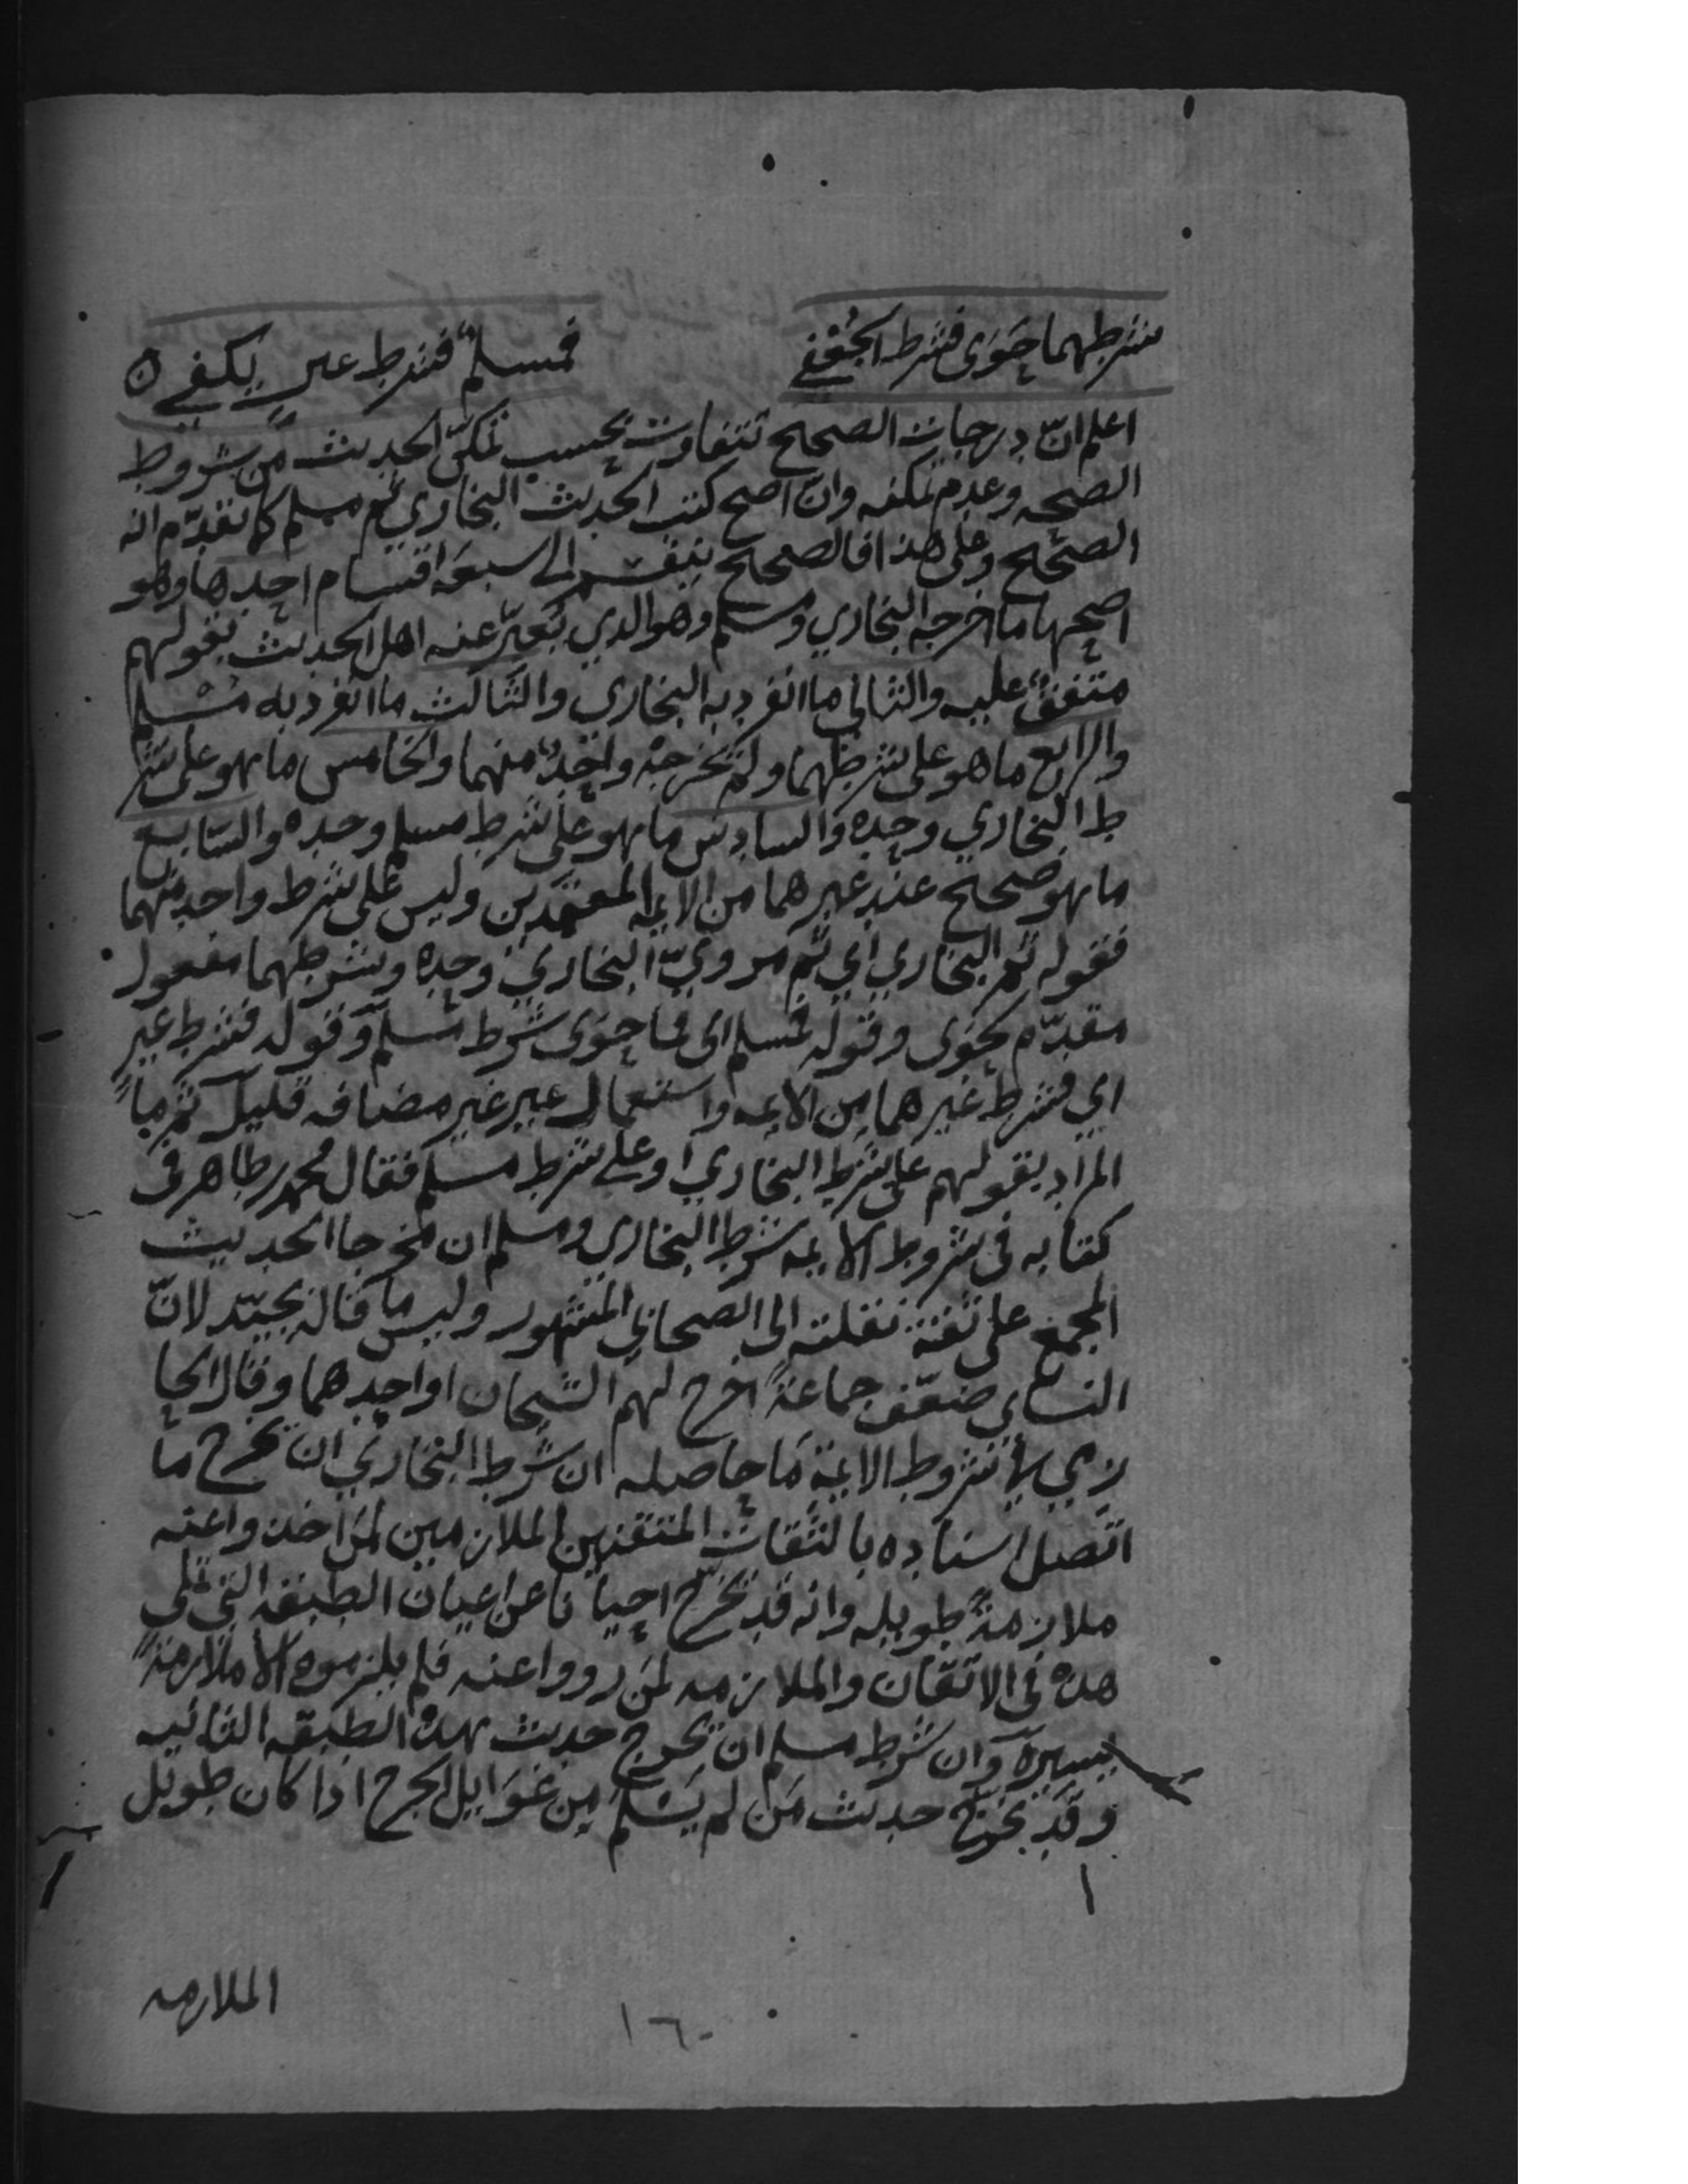 شرطهما حوى فشرط الجعفي فمسلم فشرط غير يكفي ه
اعلم انّ درجات الصحيح تتفاوت بحسب تمكّن الحديث من شروط
الصحه وعدم تمكنه وانّ اصح كتب الحديث البخاري ثم مسلم كما تقدّم انه
الصحيح وعلى هذا فالصحيح ينقسم الى سبعة اقسام احدها وهو
اصحها ما اخرجه البخاري ومسلم وهو الذي يُعبّر عنه اهل الحديث بقولهم
متفق عليه والثاني ما انفرد به البخاري والثالث ما انفرد به مُسلم
والرابع ما هو على شرطهما ولم يخرجه واحدٌ منهما والخامس ما هو على شر
ط البخاري وحده والسادس ما هو على شرط مسلم وحده والسّابع
ما هو صحيح عند غيرهما من الايمه المعتمدين وليس على شرط واحد منهما
فقوله ثم البخاري اي ثم مرويّ البخاري وحده وشرطهما مفعول
مقدّم لحوى وقوله فمسلم اى فما حوى شرط مسلم وقوله فشرط غير
اي فشرط غيرهما من الايمه واستعمال غير غير مضافه قليل ثم ما
المراد بقولهم على شرط البخاري او على شرط مسلم فقال محمد بن طاهر في
كتابه في شروط الايمه شرط البخاري ومسلم ان يخرجا الحديث
المجمع على ثقة نقلته الى الصحابي المشهور وليس ما قاله بجيّد لانّ
النساى ضعّف جماعةً اخرج لهم الشيخان او احدهما وقال الحا
زمي في شروط الايمة ما حاصله ان شرط البخاري ان يخرج ما
اتصل اسناده بالثقات المتقنين الملازمين لمن اخذوا عنه
ملازمةً طويله وانه قد يخرّج احيانا عن اعيان الطبقه التي تلي
هذه في الاتقان والملازمه لمن رووا عنه فلم يلزموه الا ملازمةً
يسيرة وان شرط مسلم ان يخرج حديث هذه الطبقه الثانيه
وقد يخرّج حديث من لم يَسْلم من غوايل الجرح اذا كان طويل
الملازمه
١٦٠